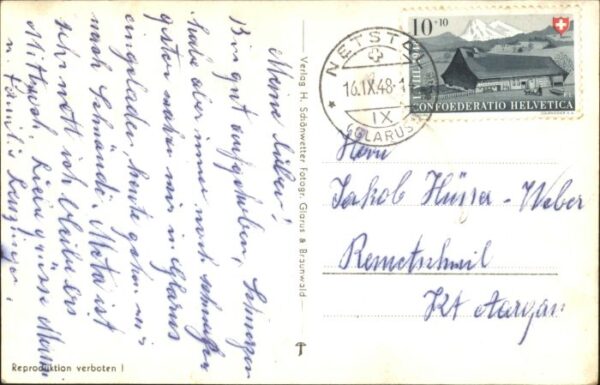 Meine Lieben!
Bin gut aufgehoben, Schmerzen
habe aber immer noch
Gestern waren wir in Glarus
eingeladen, heute gehen wir
nach Schwändi. Meta ist
sehr nett ich bleibe bis
Mittwoch. Liebe Grüsse
u. Familie
Reproduktion verboten !
Verlag H. Schönwetter Fotogr. Glarus & Braunwald
NETSTAL
16.IX.48
IX
(GLARUS)
10+10
CONFOEDERATIO HELVETICA
Herrn
Jakob Hüsser-Weber
Remetschwil
Kt Aargau